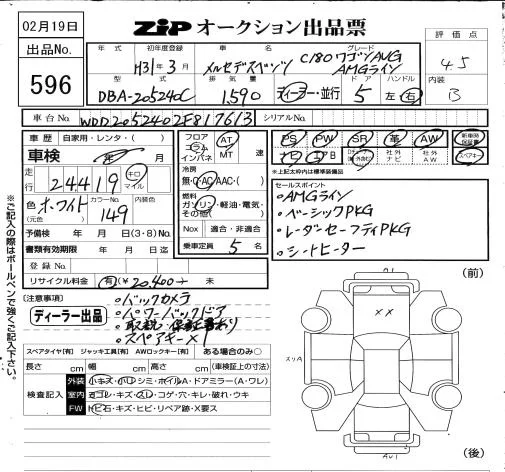 02月19日
出品No.
596
ZIP オークション出品票
評価点
4.5
内装
B
年式
初年度登録
車名
グレード
H31年3月
メルセデスベンツ
C180ワゴンAVG
AMGライン
型式
排気量
ドア
ハンドル
DBA-205240C
1,590
ディーラー・並行
5
左・右
車台No.
WDD2052402F817613
シリアルNo.
車歴
自家用・レンタ・( )
車検
年 月
走行
24,419
キロ
マイル
色
(元色)
ホワイト
カラーNo.
149
内装色
予備検 年 月 日(3・8)No.
書類有効期限 年 月 日迄
登録No.
リサイクル料金
有(¥20,400
未
フロア
インパネ
AT
MT
速
冷房
無・AC・AAC・( )
燃料
ガソリン・軽油・電気・
その他( )
Nox
適合・非適合
乗車定員
5名
PS
PW
SR
革
AW
新車時
保証書
ナビ
社外
ナビ
社外
AW
スペアキー
★上記太枠内は標準装備品
セールスポイント
・AMGライン
・ベーシックPKG
・レーダーセーフティPKG
・シートヒーター
(注意事項)
ディーラー出品
・バックカメラ
・パワーバックドア
・取説・保証書有り
・スペアキー×1
スペアタイヤ[有] ジャッキ工具[有] AWロックキー[有] ある場合のみ○
長さ cm 幅 cm 高さ cm (車検証上の寸法)
検査記入
外装
小キズ・ハリシミ・ホイルA・ドアミラー(A・ワレ)
室内
ヨゴレ・キズ・スレ・コゲ・穴・キレ・破れ・ウキ
FW
トビ石・キズ・ヒビ・リペア跡・X要ス
※ご記入の際はボールペンで強くご記入下さい。
(前)
××
スリA
(後)